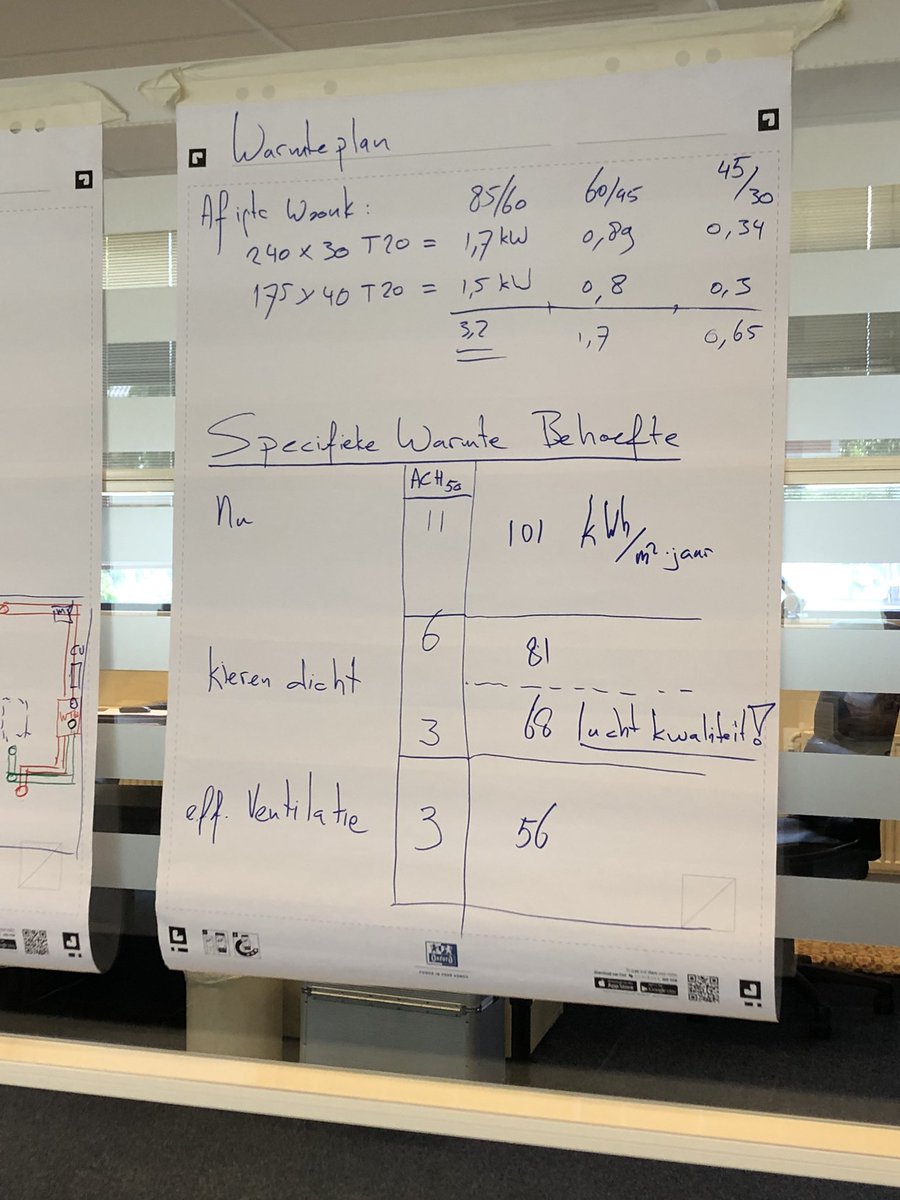 Warmteplan
Afgifte Woonk: 85/60 60/45 45/30
240 x 30 T20 = 1,7 kW 0,89 0,34
175 x 40 T20 = 1,5 kW 0,8 0,3
3,2 1,7 0,65
Specifieke Warmte Behoefte
ACH50
Nu 11 101 kWh/m².jaar
6 81
kieren dicht
3 68 lucht kwaliteit!
eff. Ventilatie 3 56
WTW
CV
Oxford